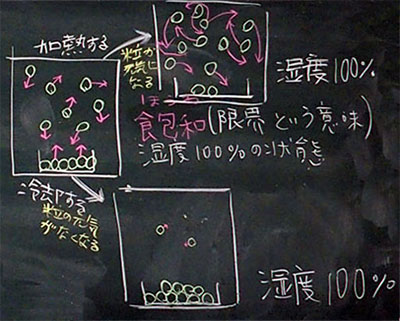 加熱する
粒が
元気に
なる
湿度100%
ほう
飽和(限界という意味)
湿度100%の状態
冷却する
粒の元気
がなくなる
湿度100%